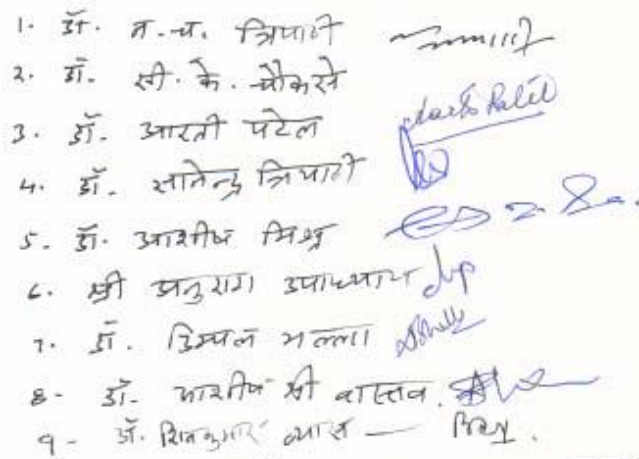 1. डॉ. न.च. त्रिपाठी
2. डॉ. सी. के. चौकसे
3. डॉ. आरती पटेल Aarti Patel
4. डॉ. त्रिपाठी
5. डॉ. आशीष मिश्र
6. श्री अनुराग उपाध्याय
7. डॉ. डिम्पल भल्ला
8- डॉ. आशीष श्रीवास्तव.
9- डॉ. शिवकुमार व्यास —